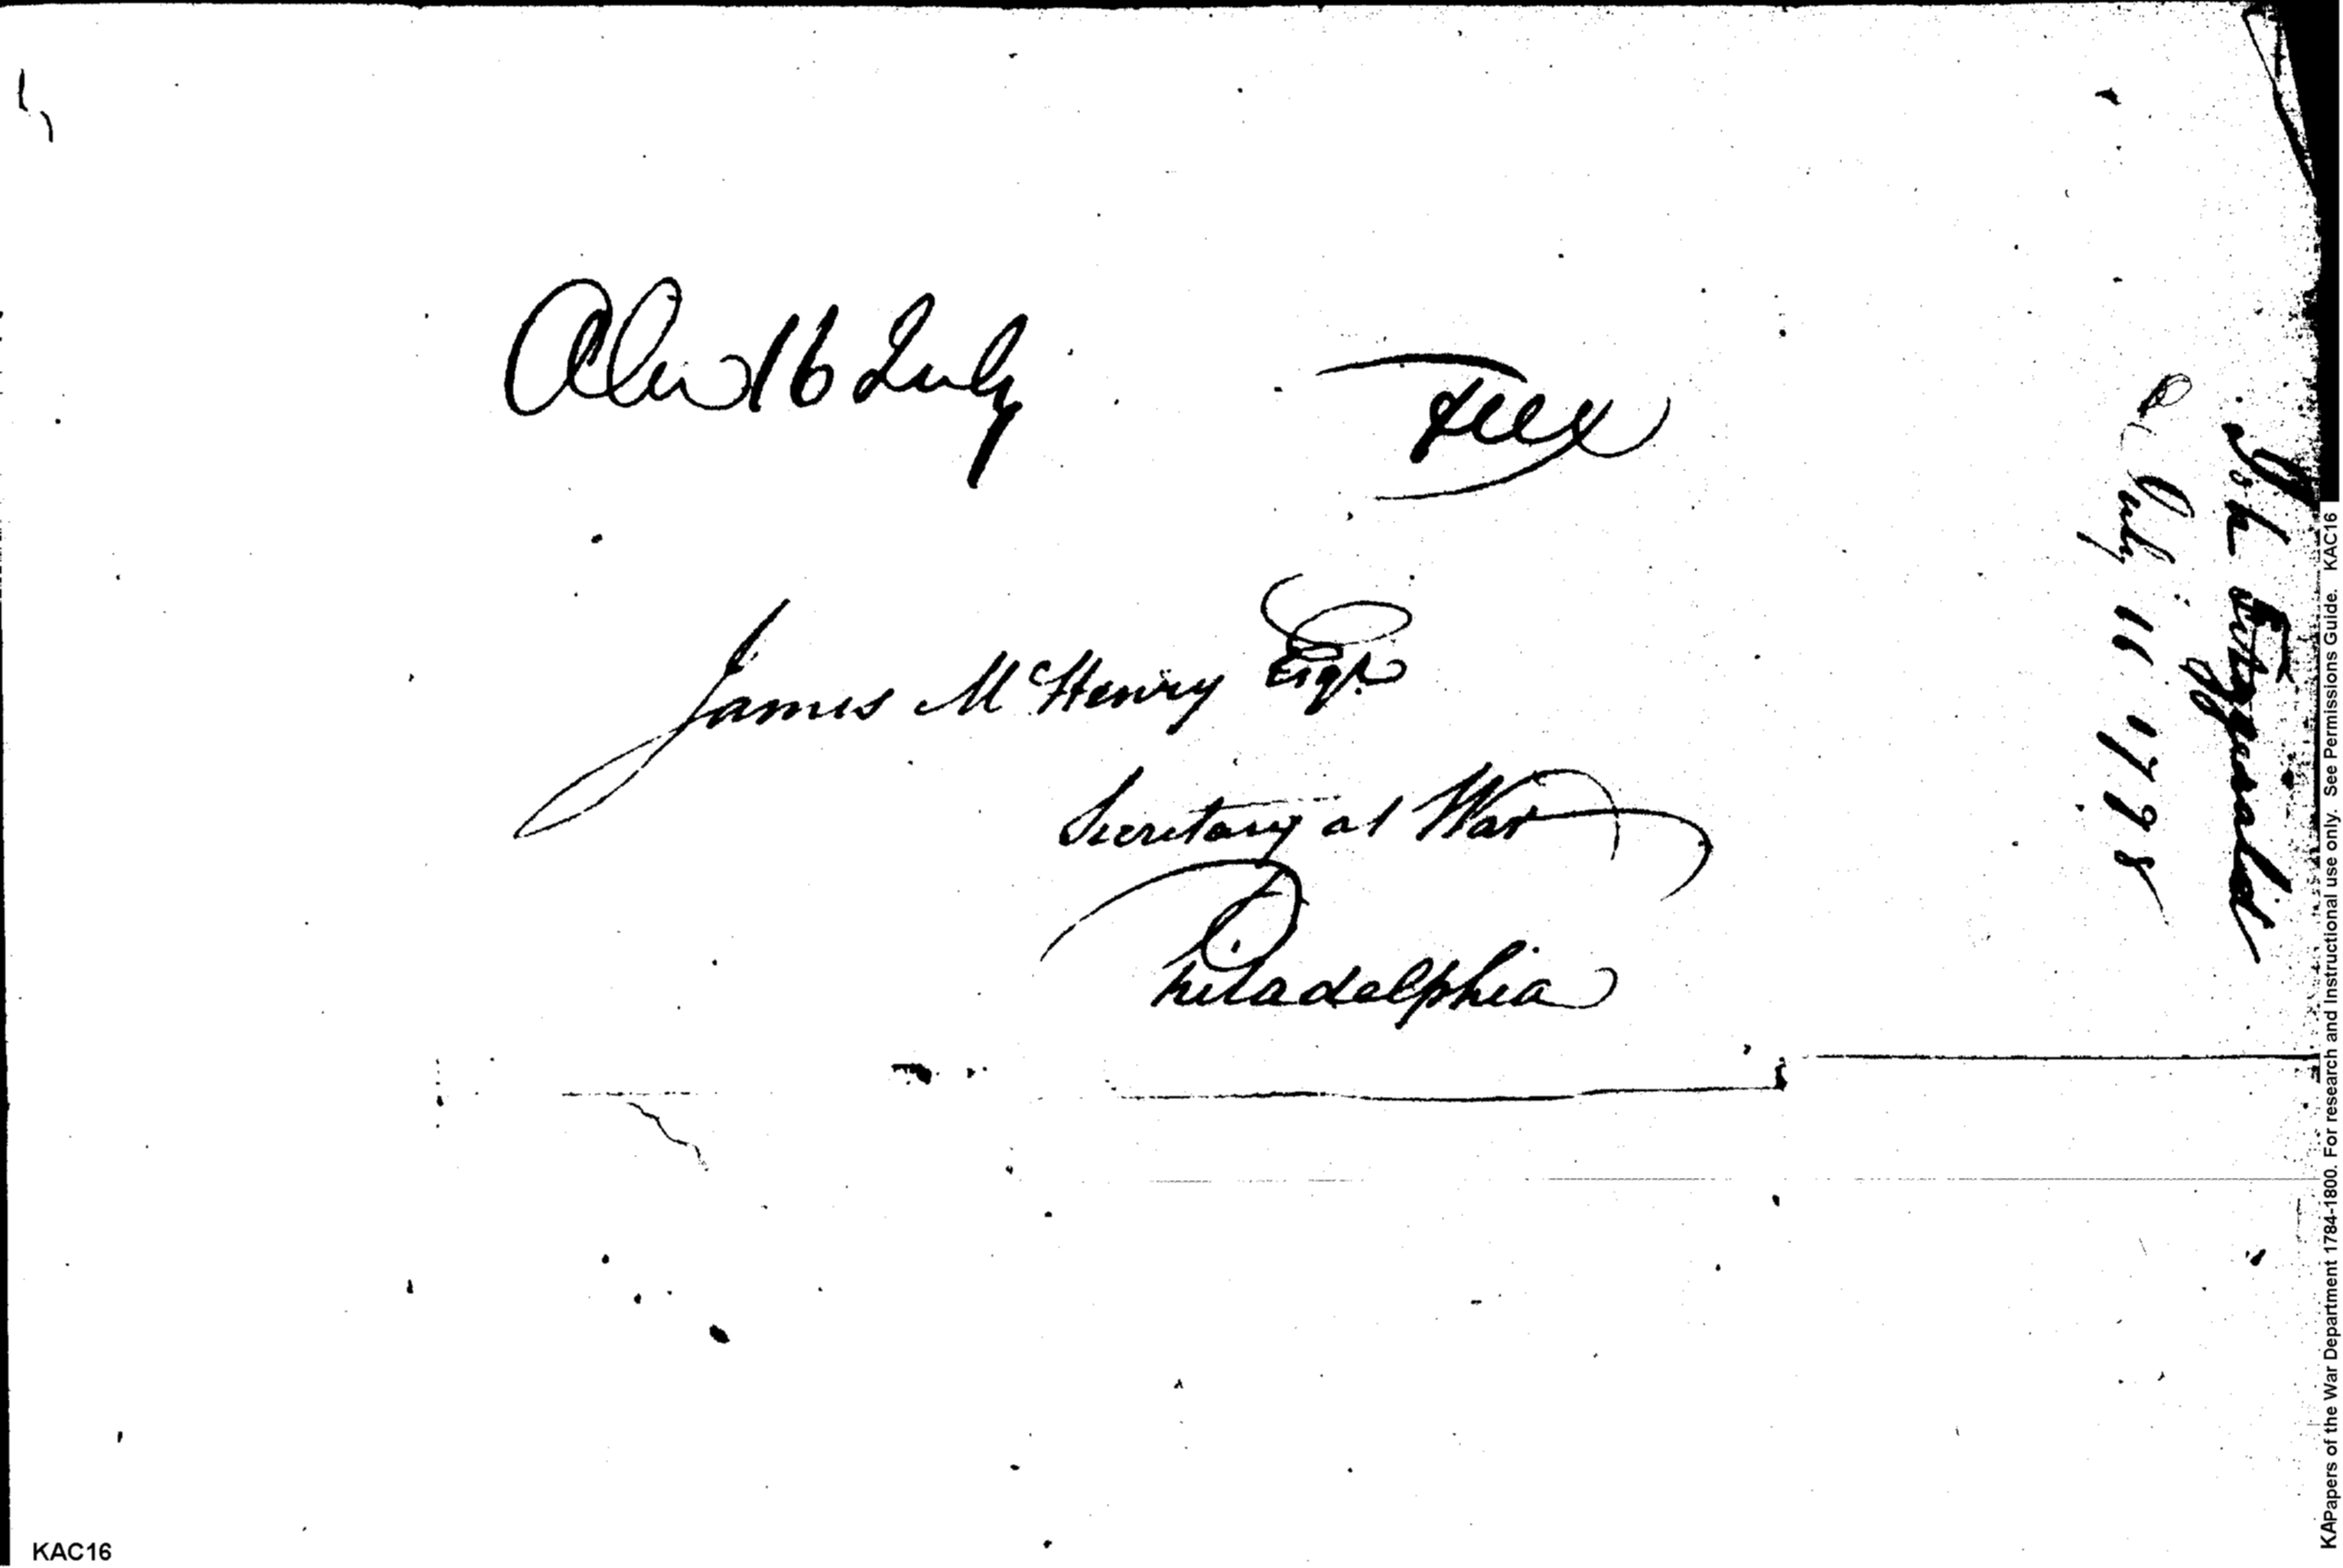 Alex 16 July
Free
James McHenry Esqr
Secretary at War
Philadelphia
Jno Fitzgerald
July 16 1798
KAC16
KAPapers of the War Department 1784-1800. For research and Instructional use only. See Permissions Guide. KAC16